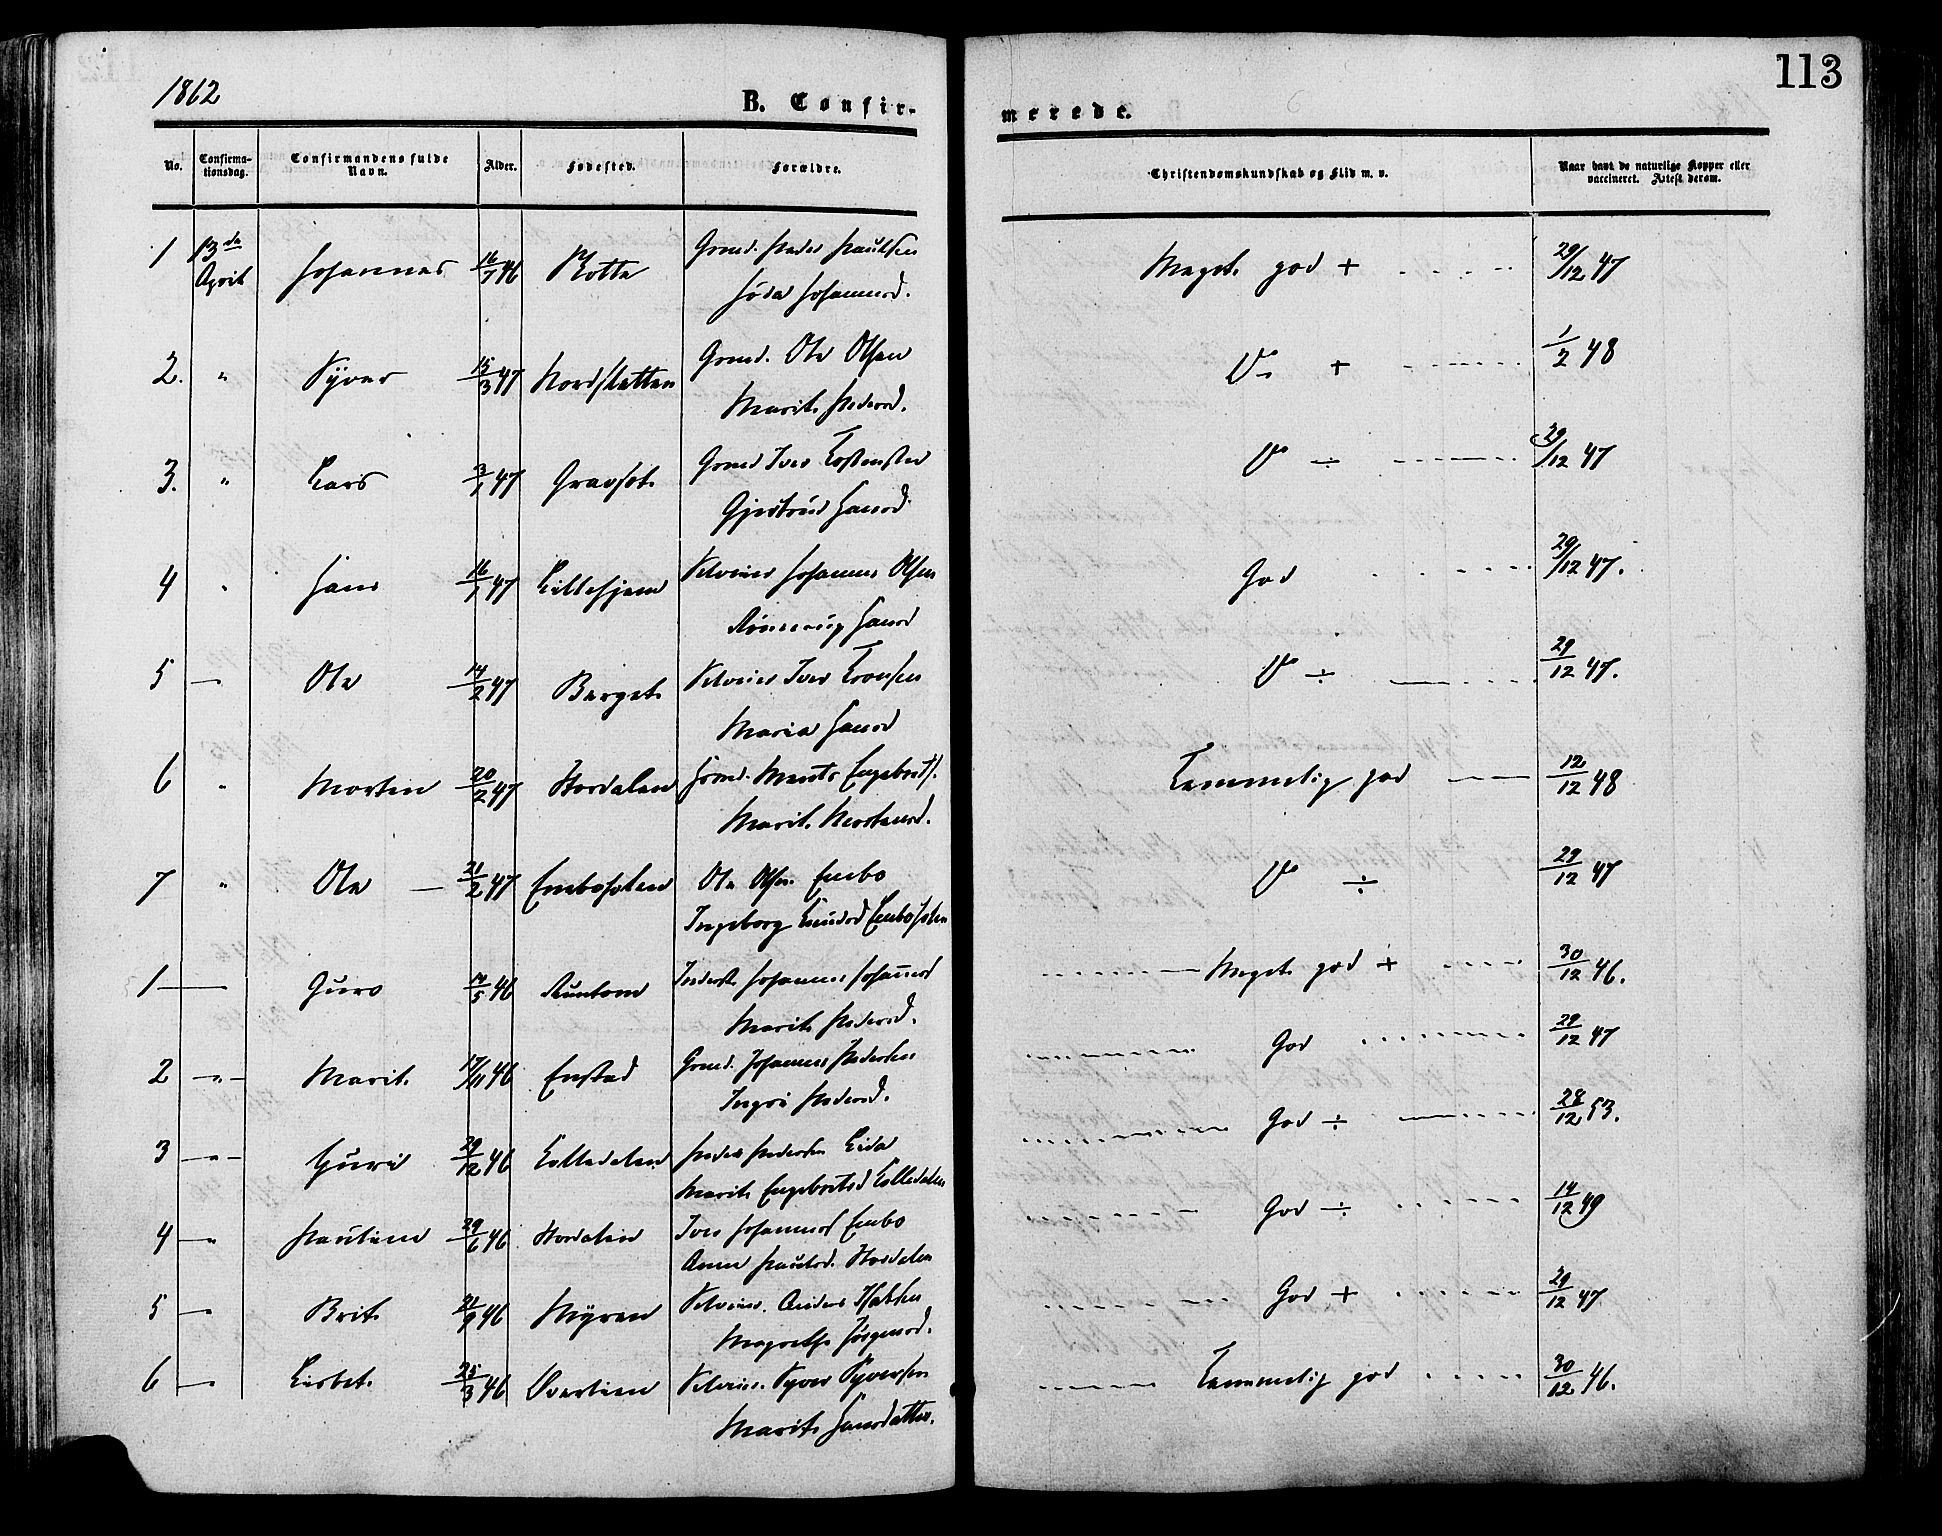 113
1862
B. Confirmerede.
No. Confirmationsdag. Confirmandens fulde Navn. Alder. Fødested. Forældre. Christendomskundskab og Flid m. v. Naar havt de naturlige Kopper eller vaccineret. Attest derom.
1 13de April Johannes 16/7 46 Grmd. Peder Paulsen Meget god + 29/12 47
Johannesd.
2. " Syver 15/3 47 Nordsletten Grmd. Ole Olsen + 1/2 48
Marit Pedersd.
3. " Lars 3/1 47 Gravset Grmd Iver ÷ 29/12 47
Gjertrud Hansd
4 " Hans 16/1 47 Lillehjem Selveier Johannes Olsen God 29/12 47.
Rønnaug Hansd
5 — Ole 14/2 47 Berget Selveier Iver ÷ 29/12 47.
Maria Hansd
6 " Morten 20/2 47 Hordalen Engebrets. Temmelig god 12/12 48
Marit Mortensd.
7 " Ole 21/2 47 Emboeien Ole Olsen Embo ÷ 29/12 47
Ingeborg
1 Guro 14/5 46 Johannes Johannesd Meget god + 30/12 46.
Marit Pedersd.
2 " Marit 17/11 46 Enstad Grmd. Johannes Pedersen God 29/12 47
Ingri Pedersd.
3 " Guri 29/12 46 Lilledalen Peder Pedersen Eida God ÷ 28/12 53.
Marit Engebretsd Lilledalen
4 " Pauline 29/6 46 Hordalen Iver Johannesd Embo God ÷ 14/12 49
Anne Paulsd. Hordalen
5 " Brit 21/9 46 Myren Selveier. Anders God + 29/12 47
Magrethe Jørgensd.
6 " Lisbet 25/3 46 Øverlien Selveier. Syver Syversen Temmelig god 30/12 46.
Marit Hansdatter.